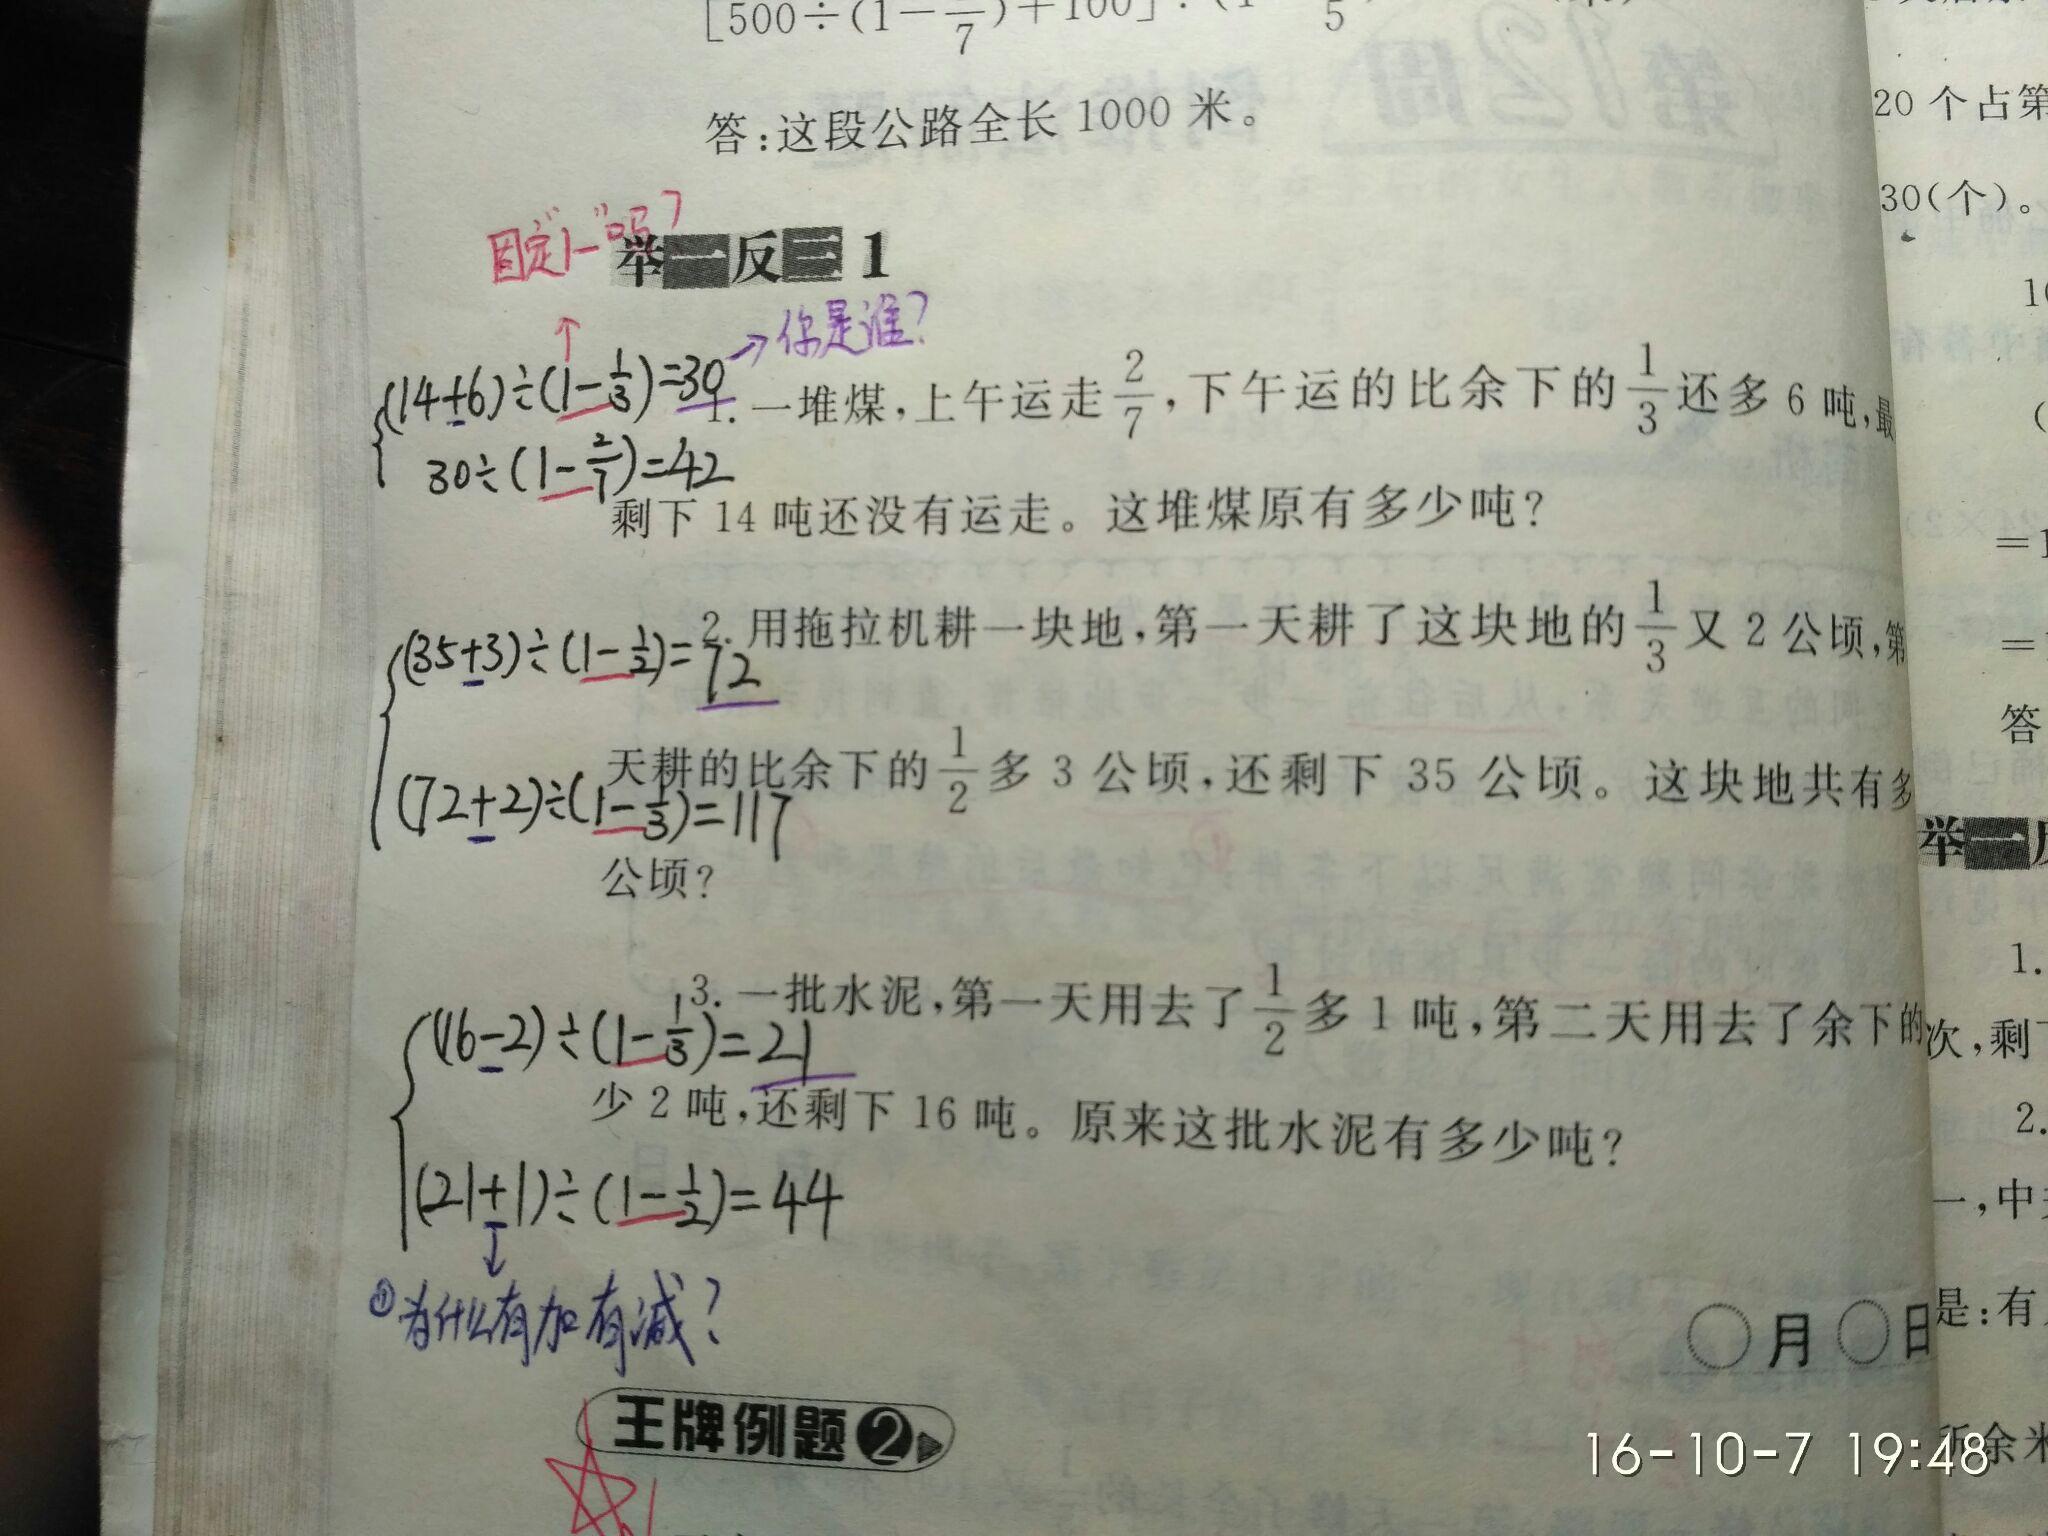 [500÷(1-  /7)+100]÷(1-  /5)
答:这段公路全长 1000 米。
固定“1-”吗?
举一反三 1
你是谁?
(14+6)÷(1-1/3)=30
30÷(1-2/7)=42
1. 一堆煤,上午运走2/7,下午运的比余下的1/3还多 6 吨,最
剩下 14 吨还没有运走。这堆煤原有多少吨?
(35+3)÷(1-1/2)=72
2. 用拖拉机耕一块地,第一天耕了这块地的1/3又 2 公顷,第
天耕的比余下的1/2多 3 公顷,还剩下 35 公顷。这块地共有多
(72+2)÷(1-1/3)=117
公顷?
3. 一批水泥,第一天用去了1/2多 1 吨,第二天用去了余下的
(16-2)÷(1-1/3)=21
少 2 吨,还剩下 16 吨。原来这批水泥有多少吨?
(21+1)÷(1-1/2)=44
①为什么有加有减?
○月○日
王牌例题❷
20 个占第
30(个)。
答
举一反
1.
次,剩下
2.
一,中
是:有
所余米
第12周
16-10-7 19:48